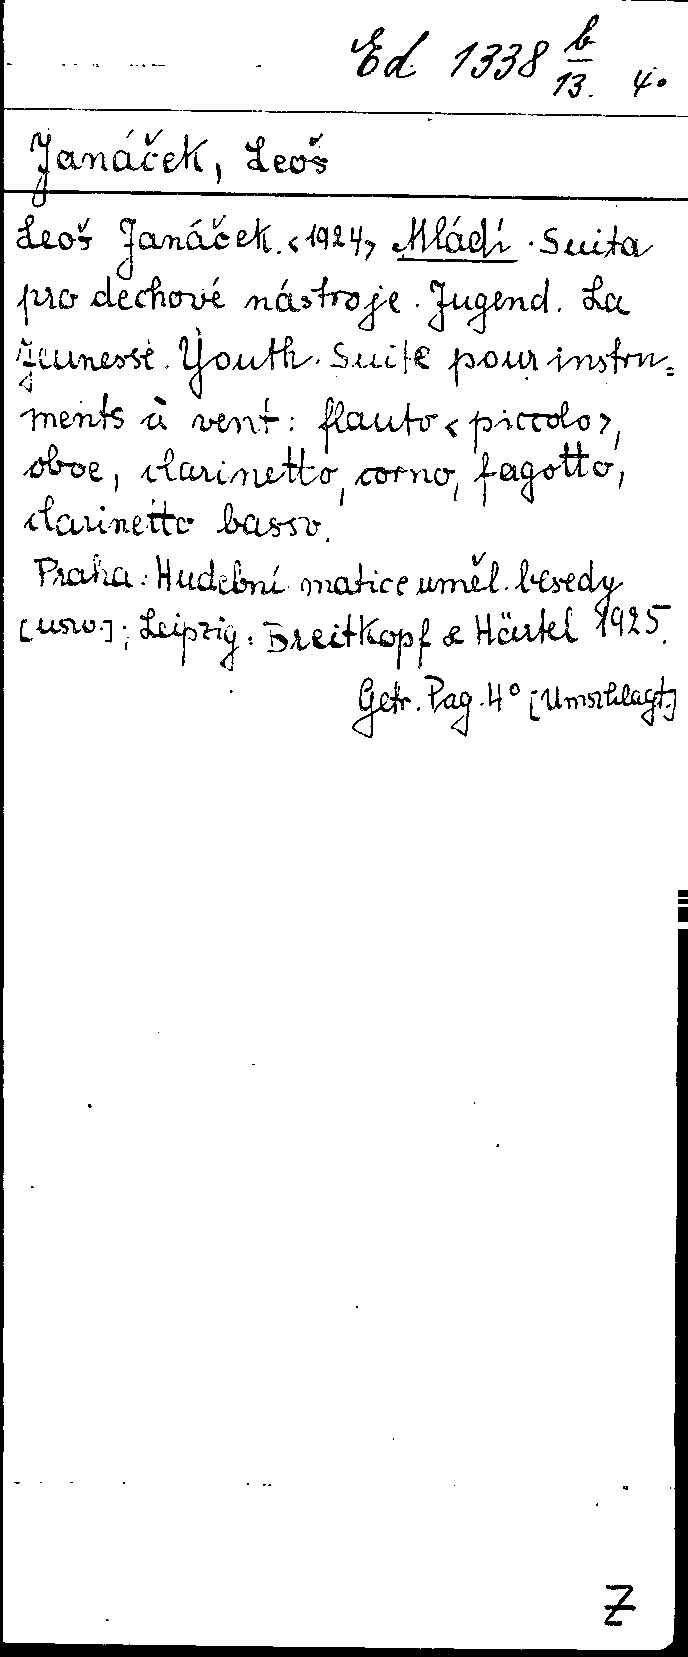 Ed 1338 b/13. 4.
Janáček, Leoš
Leoš Janáček. <1924> Mládí. Suita
pro dechové nástroje. Jugend. La
Jeunesse. Youth. Suite pour instru=
ments à vent: flauto <piccolo>,
oboe, clarinetto, corno, fagotto,
clarinetto basso.
Praha: Hudební matice uměl. besedy
[usw.]; Leipzig: Breitkopf & Härtel 1925.
Getr. Pag. 4° [Umschlagt.]
Z